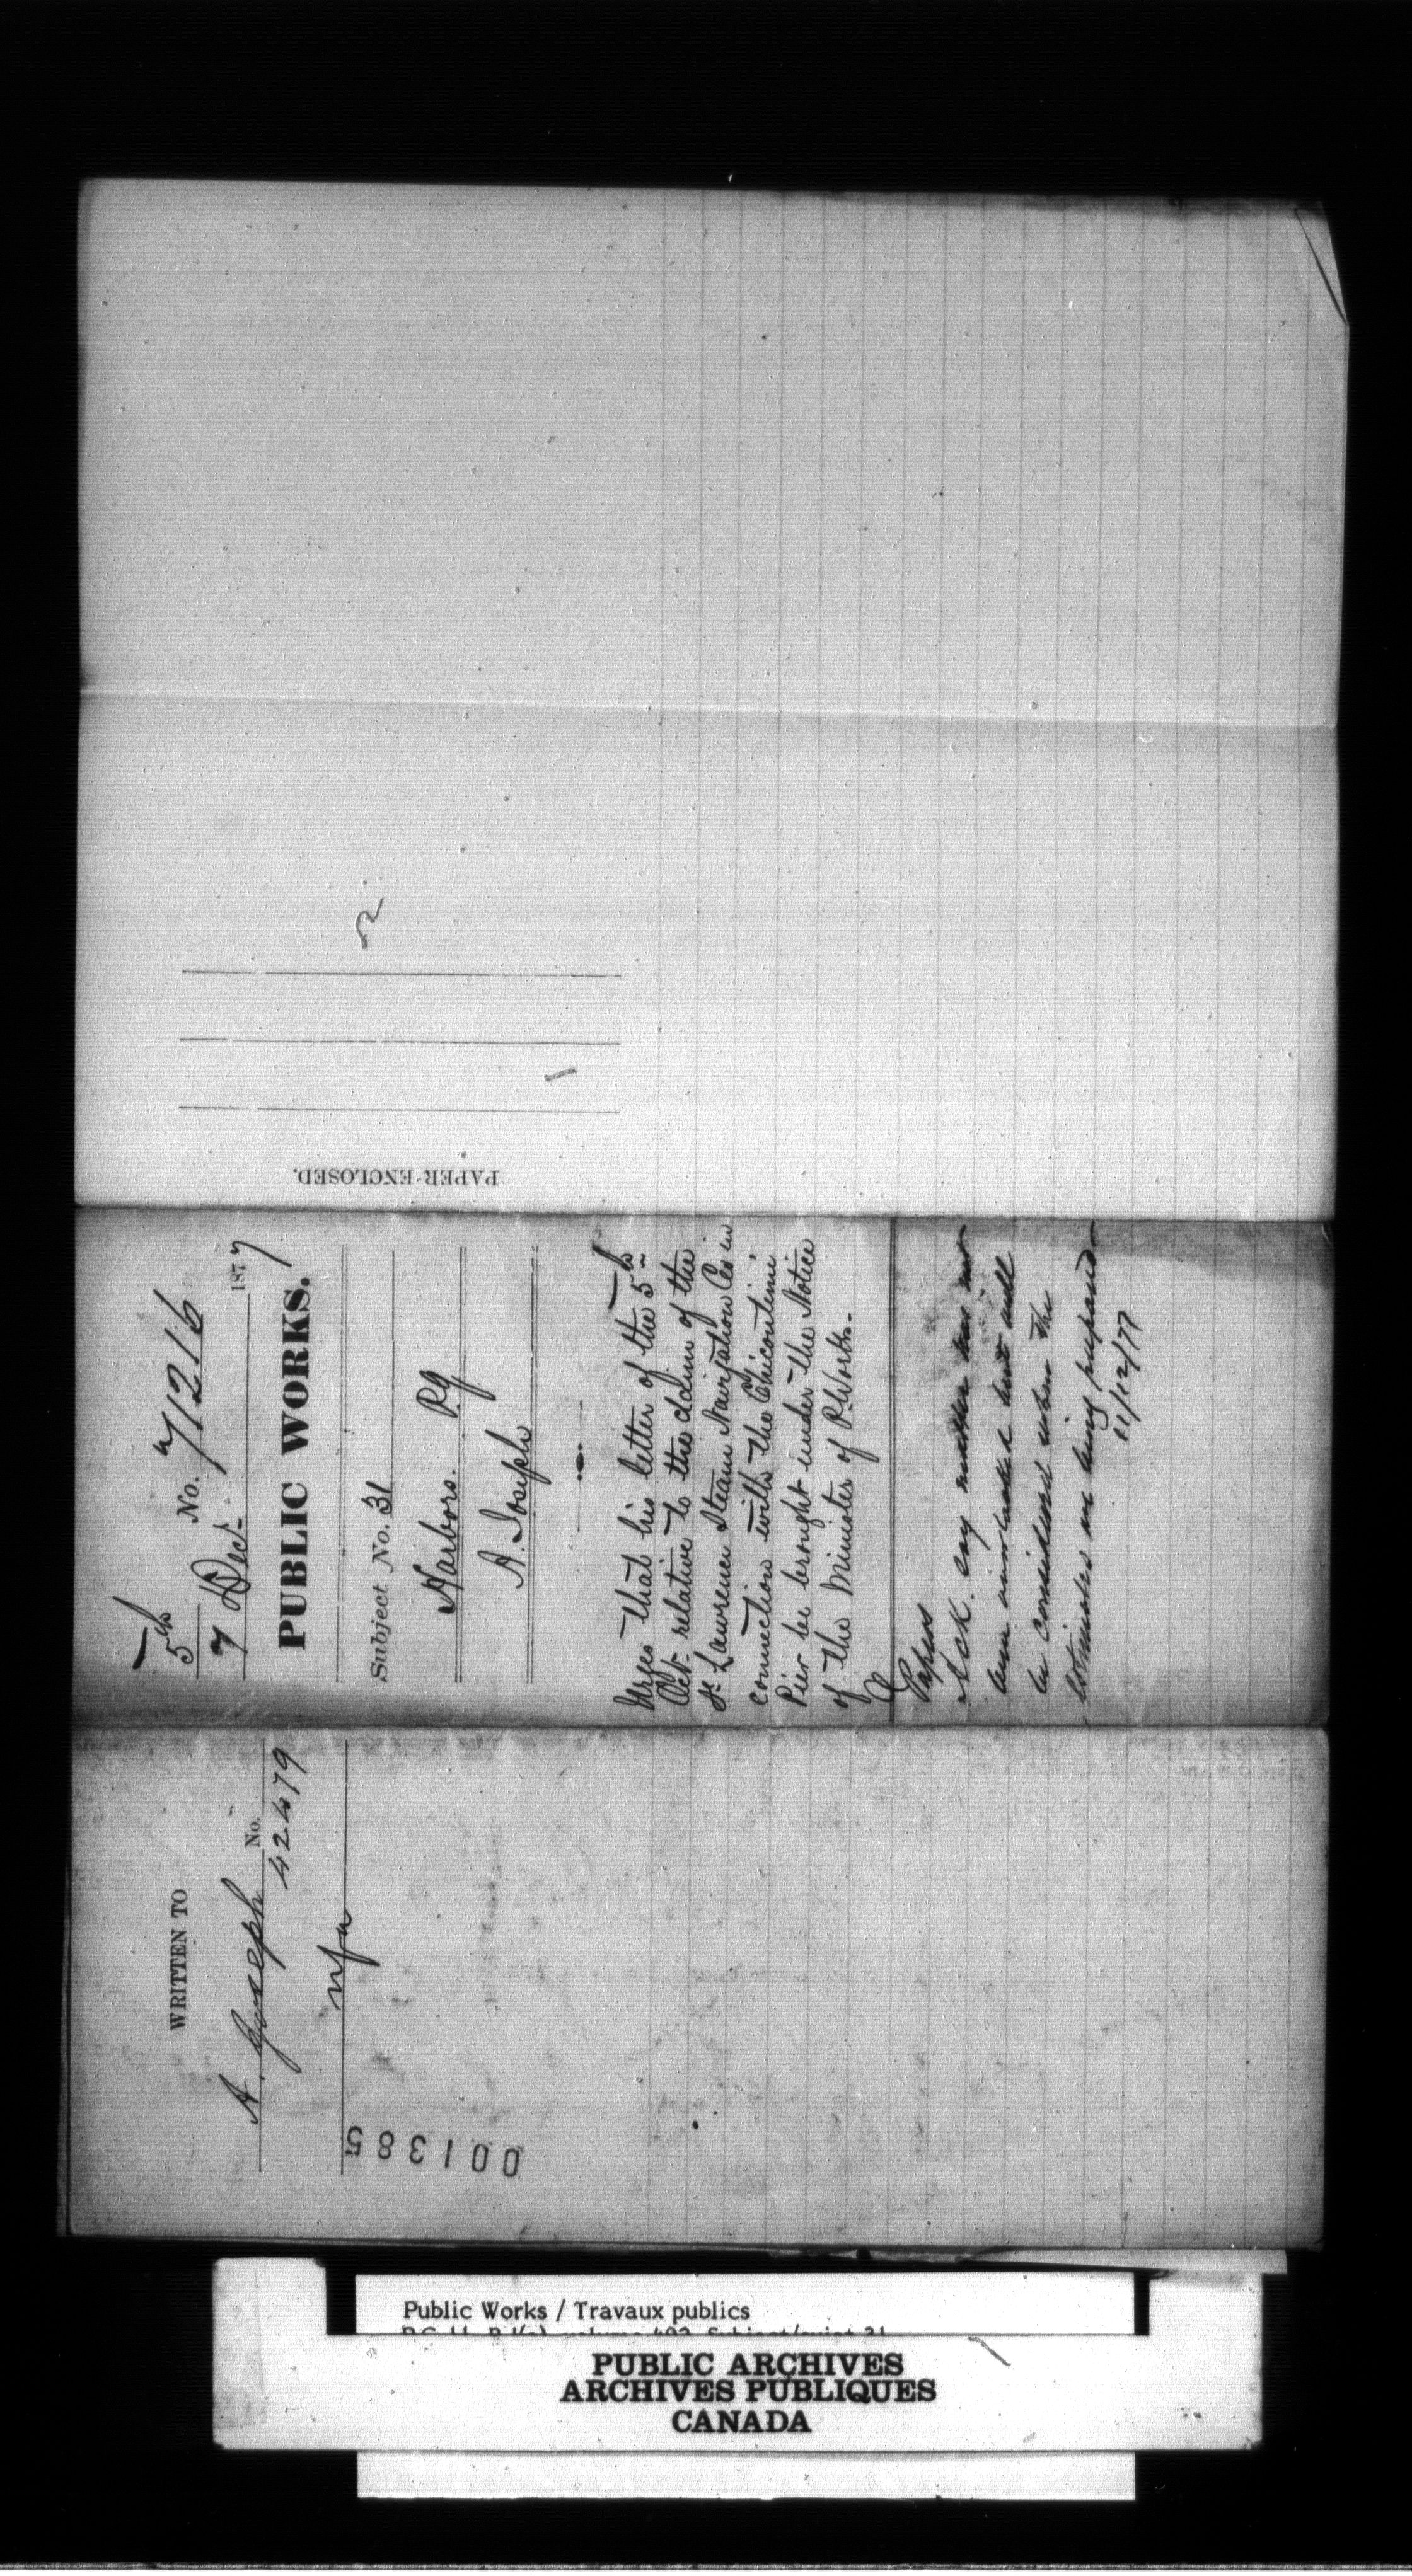 PAPER ENCLOSED.
5th
No. 71216
7 Dec. 1877
PUBLIC WORKS.
Subject No. 31
Harbors. P.Q
A. Joseph
Urges that his letter of the 5th
Oct. relative to the claim of the
St. Lawrence Steam Navigation Co. in
connection with the Chicoutimi
Pier be brought under the Notice
of the Minister of P. Works.
Papers
Ack. say matter has not
been overlooked but will
be considered when the
Estimates are being prepared
11/12/77
WRITTEN TO
A. Joseph No. 42479
001385
Public Works / Travaux publics
PUBLIC ARCHIVES
ARCHIVES PUBLIQUES
CANADA